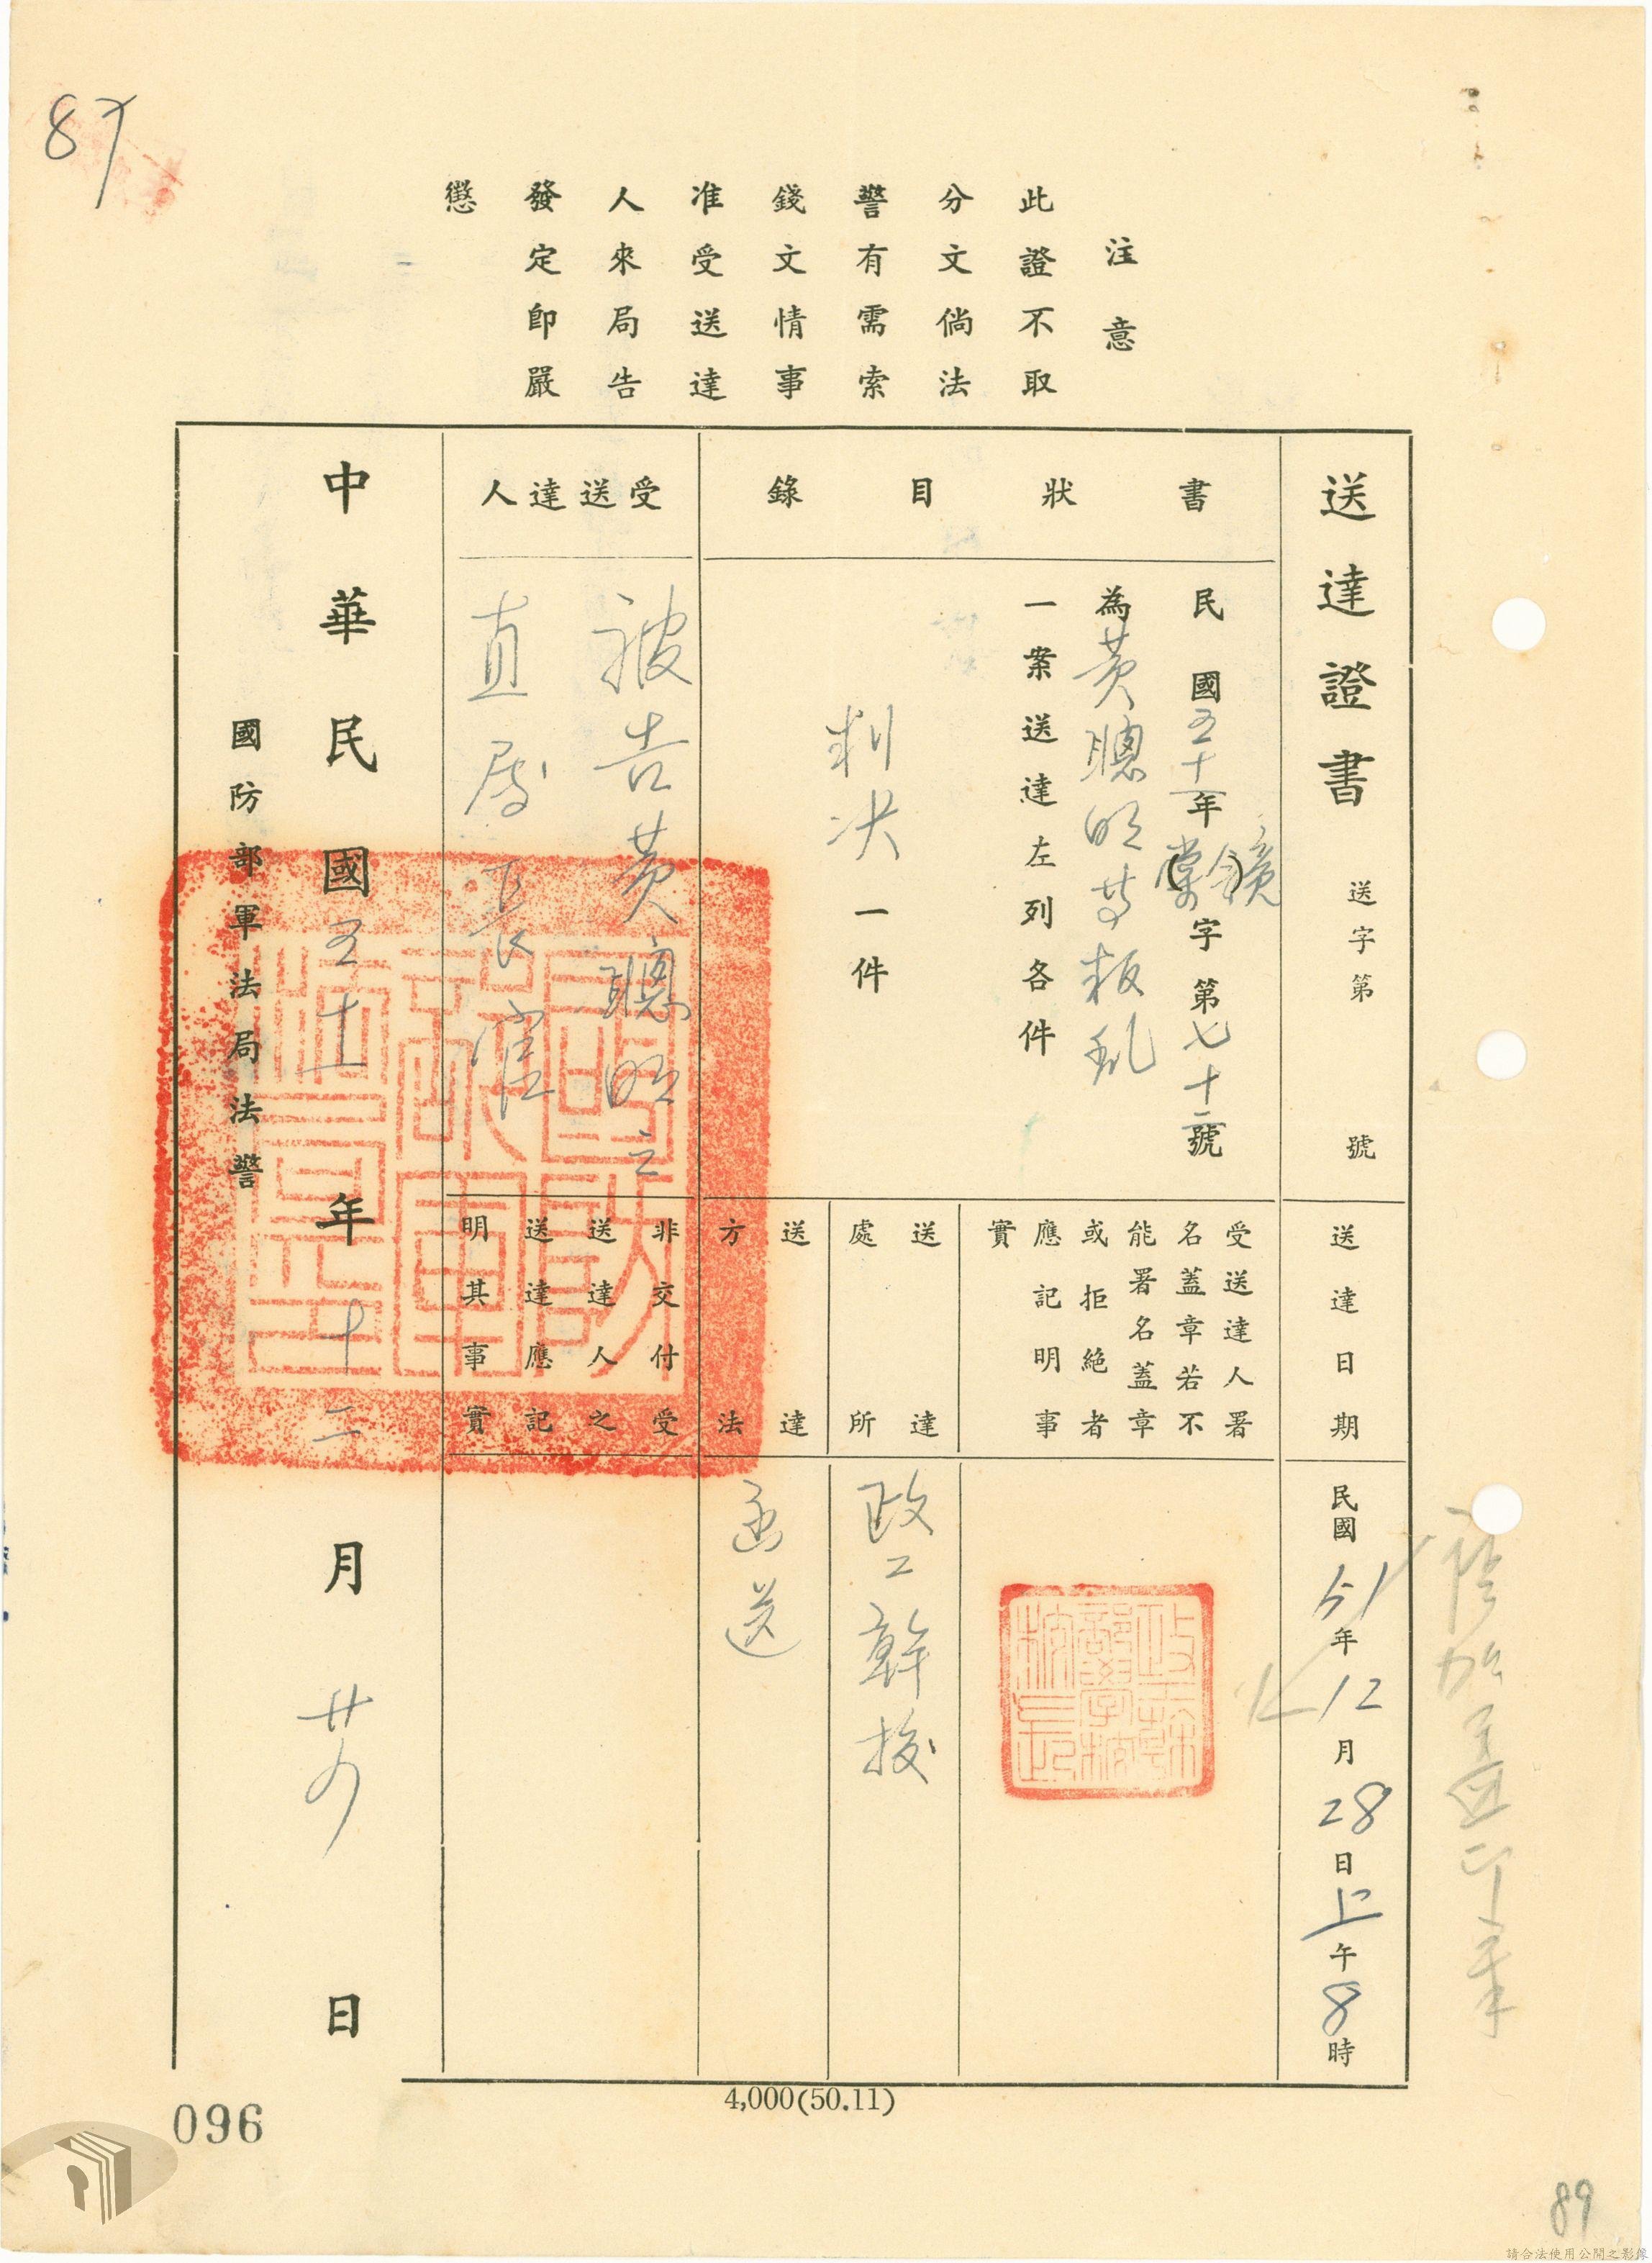 87
注意
此證不取
分文倘法
警有需索
錢文情事
准受送達
人來局告
發定即嚴
懲
送達證書
送字第 號
書狀目錄
民國五十一年(棠)鏡字第七十二號
為黃聰明等叛乱
一案送達左列各件
判決一件
受送達人
被告黃聰明之
直屬長官
送達日期
民國51年12月28日上午8時
受送達人署
名蓋章若不
能署名蓋章
或拒絕者
應記明事
實
送達處所
政工幹校
送達方法
函送
非交付受
送達人之
送達應記
明其事實
中華民國五十一年十二月廿 日
國防部軍法局法警
4,000(50.11)
096
89
請合法使用公開之影像